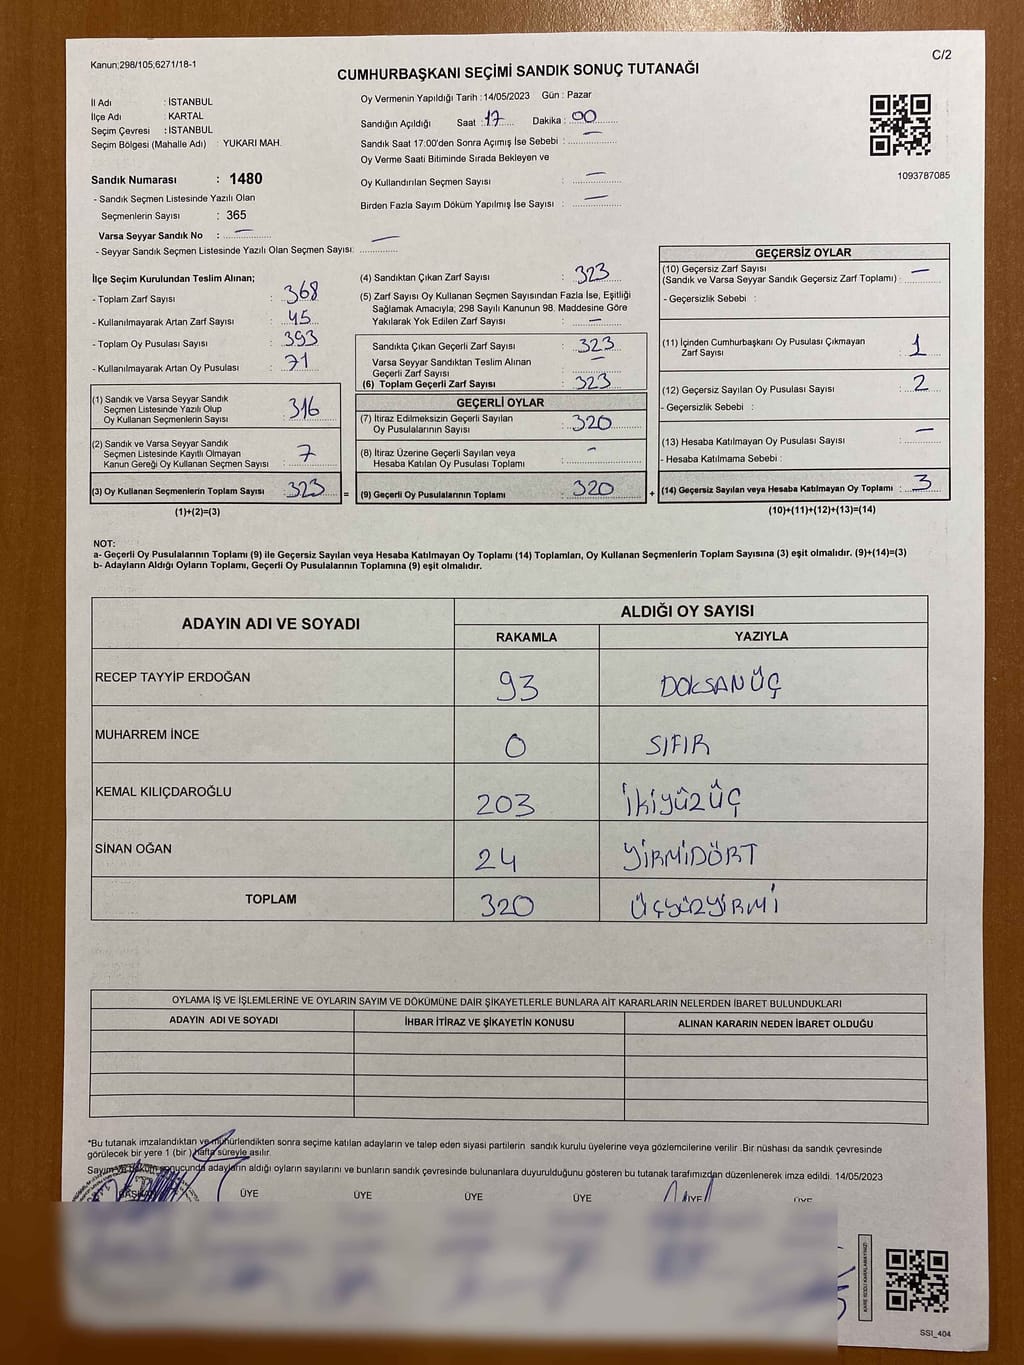 Kanun;298/105,6271/18-1
C/2
CUMHURBAŞKANI SEÇİMİ SANDIK SONUÇ TUTANAĞI
İl Adı : İSTANBUL
İlçe Adı : KARTAL
Seçim Çevresi : İSTANBUL
Seçim Bölgesi (Mahalle Adı) : YUKARI MAH.
Sandık Numarası : 1480
- Sandık Seçmen Listesinde Yazılı Olan
Seçmenlerin Sayısı : 365
Varsa Seyyar Sandık No : —
- Seyyar Sandık Seçmen Listesinde Yazılı Olan Seçmen Sayısı: —
Oy Vermenin Yapıldığı Tarih : 14/05/2023 Gün : Pazar
Sandığın Açıldığı Saat : 17 Dakika : 00
Sandık Saat 17:00'den Sonra Açımış İse Sebebi : —
Oy Verme Saati Bitiminde Sırada Bekleyen ve
Oy Kullandırılan Seçmen Sayısı : —
Birden Fazla Sayım Döküm Yapılmış İse Sayısı : —
1093787085
İlçe Seçim Kurulundan Teslim Alınan;
- Toplam Zarf Sayısı : 368
- Kullanılmayarak Artan Zarf Sayısı : 45
- Toplam Oy Pusulası Sayısı : 393
- Kullanılmayarak Artan Oy Pusulası : 71
(1) Sandık ve Varsa Seyyar Sandık
Seçmen Listesinde Yazılı Olup
Oy Kullanan Seçmenlerin Sayısı : 316
(2) Sandık ve Varsa Seyyar Sandık
Seçmen Listesinde Kayıtlı Olmayan
Kanun Gereği Oy Kullanan Seçmen Sayısı : 7
(3) Oy Kullanan Seçmenlerin Toplam Sayısı : 323
(1)+(2)=(3)
(4) Sandıktan Çıkan Zarf Sayısı : 323
(5) Zarf Sayısı Oy Kullanan Seçmen Sayısından Fazla İse, Eşitliği
Sağlamak Amacıyla; 298 Sayılı Kanunun 98. Maddesine Göre
Yakılarak Yok Edilen Zarf Sayısı : —
Sandıkta Çıkan Geçerli Zarf Sayısı : 323
Varsa Seyyar Sandıktan Teslim Alınan
Geçerli Zarf Sayısı : —
(6) Toplam Geçerli Zarf Sayısı : 323
GEÇERLİ OYLAR
(7) İtiraz Edilmeksizin Geçerli Sayılan
Oy Pusulalarının Sayısı : 320
(8) İtiraz Üzerine Geçerli Sayılan veya
Hesaba Katılan Oy Pusulası Toplamı : -
= (9) Geçerli Oy Pusulalarının Toplamı : 320
GEÇERSİZ OYLAR
(10) Geçersiz Zarf Sayısı
(Sandık ve Varsa Seyyar Sandık Geçersiz Zarf Toplamı) : —
- Geçersizlik Sebebi :
(11) İçinden Cumhurbaşkanı Oy Pusulası Çıkmayan
Zarf Sayısı : 1
(12) Geçersiz Sayılan Oy Pusulası Sayısı : 2
- Geçersizlik Sebebi :
(13) Hesaba Katılmayan Oy Pusulası Sayısı : —
- Hesaba Katılmama Sebebi :
+ (14) Geçersiz Sayılan veya Hesaba Katılmayan Oy Toplamı : 3
(10)+(11)+(12)+(13)=(14)
NOT:
a- Geçerli Oy Pusulalarının Toplamı (9) ile Geçersiz Sayılan veya Hesaba Katılmayan Oy Toplamı (14) Toplamları, Oy Kullanan Seçmenlerin Toplam Sayısına (3) eşit olmalıdır. (9)+(14)=(3)
b- Adayların Aldığı Oyların Toplamı, Geçerli Oy Pusulalarının Toplamına (9) eşit olmalıdır.
ADAYIN ADI VE SOYADI
ALDIĞI OY SAYISI
RAKAMLA YAZIYLA
RECEP TAYYİP ERDOĞAN 93 DOKSANÜÇ
MUHARREM İNCE 0 SIFIR
KEMAL KILIÇDAROĞLU 203 İkiyüzüç
SİNAN OĞAN 24 YİRMİDÖRT
TOPLAM 320 ÜÇYÜZYİRMİ
OYLAMA İŞ VE İŞLEMLERİNE VE OYLARIN SAYIM VE DÖKÜMÜNE DAİR ŞİKAYETLERLE BUNLARA AİT KARARLARIN NELERDEN İBARET BULUNDUKLARI
ADAYIN ADI VE SOYADI İHBAR İTİRAZ VE ŞİKAYETİN KONUSU ALINAN KARARIN NEDEN İBARET OLDUĞU
*Bu tutanak imzalandıktan ve mühürlendikten sonra seçime katılan adayların ve talep eden siyasi partilerin sandık kurulu üyelerine veya gözlemcilerine verilir. Bir nüshası da sandık çevresinde
görülecek bir yere 1 (bir) hafta süreyle asılır.
Sayım ve döküm sonucunda adayların aldığı oyların sayılarını ve bunların sandık çevresinde bulunanlara duyurulduğunu gösteren bu tutanak tarafımızdan düzenlenerek imza edildi. 14/05/2023
BAŞKAN ÜYE ÜYE ÜYE ÜYE ÜYE ÜYE
SSI_404